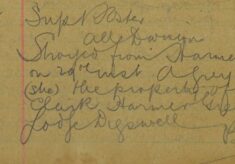 Supt Pster
All Division
Strayed from Harme
on 29th inst a grey
(she) the property of
Clark Harmer
Lodge Digswell